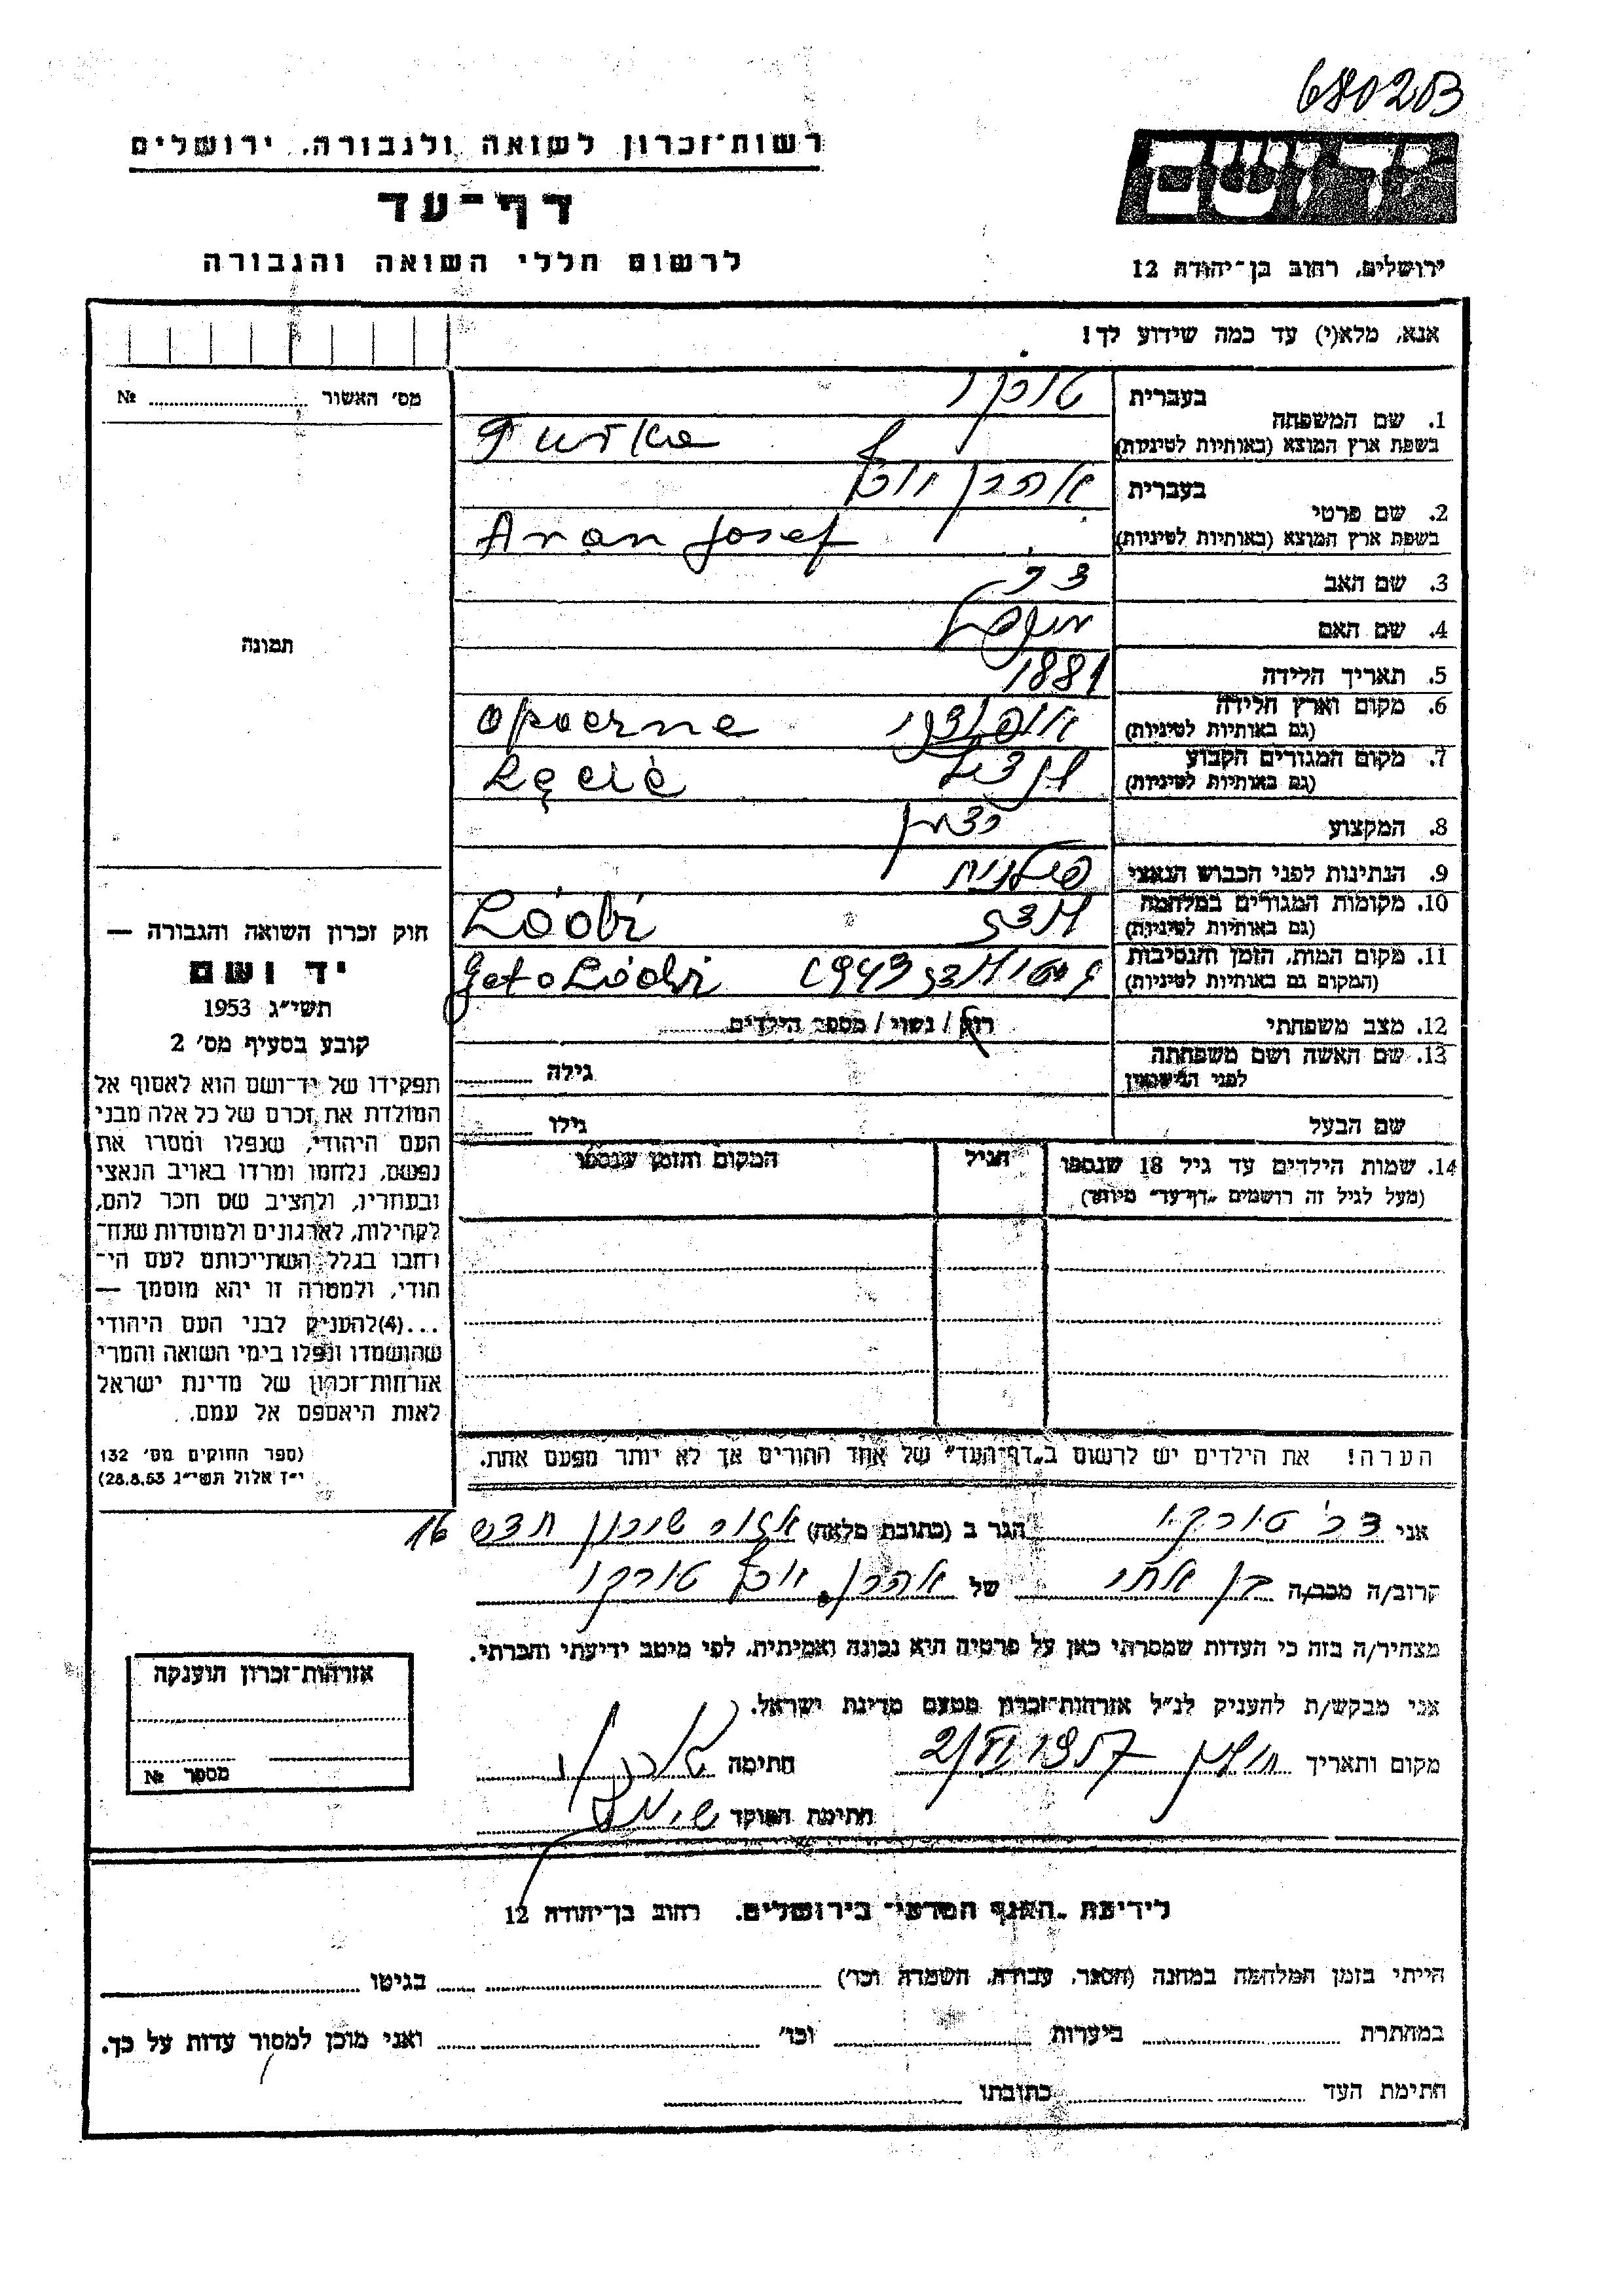 68020B
רשות־זכרון לשואה ולגבורה, ירושלים
דף־עד
לרשום חללי השואה והגבורה
יד ושם
ירושלים, רחוב בן־יהודה 12
אנא, מלא(י) עד כמה שידוע לך!
מס׳ האשור № 
תמונה
1. שם המשפחה
בעברית טורקו
בשפת ארץ המוצא (באותיות לטיניות) Turko
2. שם פרטי
בעברית אהרן יוסף
בשפת ארץ המוצא (באותיות לטיניות) Aron Josef
3. שם האב
4. שם האם
5. תאריך הלידה 1881
6. מקום וארץ הלידה
(גם באותיות לטיניות) Opoerne
7. מקום המגורים הקבוע
(גם באותיות לטיניות)
8. המקצוע
9. הנתינות לפני הכבוש הנאצי פולנית
10. מקומות המגורים במלחמה לודז
(גם באותיות לטיניות) Łódź
11. מקום המות, הזמן והנסיבות גטו לודז 1943
(המקום גם באותיות לטיניות) Geto Łódź
12. מצב משפחתי רווק / נשוי / מספר הילדים
13. שם האשה ושם משפחתה
לפני הנישואין גילה
שם הבעל גילו
14. שמות הילדים עד גיל 18 שנספו הגיל המקום והזמן שנספו
(מעל לגיל זה רושמים „דף־עד” מיוחד)
הערה! את הילדים יש לרשום ב„דף־העד” של אחד ההורים אך לא יותר מפעם אחת.
חוק זכרון השואה והגבורה —
יד ושם
תשי״ג 1953
קובע בסעיף מס׳ 2
תפקידו של יד־ושם הוא לאסוף אל
המולדת את זכרם של כל אלה מבני
העם היהודי, שנפלו ומסרו את
נפשם, נלחמו ומרדו באויב הנאצי
ובעוזריו, ולהציב שם וזכר להם,
לקהילות, לארגונים ולמוסדות שנח־
רבו בגלל השתייכותם לעם הי־
הודי, ולמטרה זו יהא מוסמך —
...(4)להעניק לבני העם היהודי
שהושמדו ונפלו בימי השואה והמרי
אזרחות־זכרון של מדינת ישראל
לאות היאספם אל עמם.
(ספר החוקים מס׳ 132
י״ז אלול תשי״ג 28.8.53)
אני טורקו הגר ב (כתובת מלאה) אזור שיכון חדש 16
קרוב/ה מכר/ה בן אחי של אהרן יוסף טורקו
מצהיר/ה בזה כי העדות שמסרתי כאן על פרטיה היא נכונה ואמיתית, לפי מיטב ידיעתי והכרתי.
אני מבקש/ת להעניק לנ״ל אזרחות־זכרון מטעם מדינת ישראל.
מקום ותאריך חולון 2/VI 1957 חתימה
חתימת הפוקד
אזרחות־זכרון הוענקה
מספר №
לידיעת „האגף המדעי” בירושלים, רחוב בן־יהודה 12
הייתי בזמן המלחמה במחנה (הסגר, עבודה, השמדה וכו׳) בגיטו
במחתרת ביערות וכו׳ ואני מוכן למסור עדות על כך.
חתימת העד כתובתו